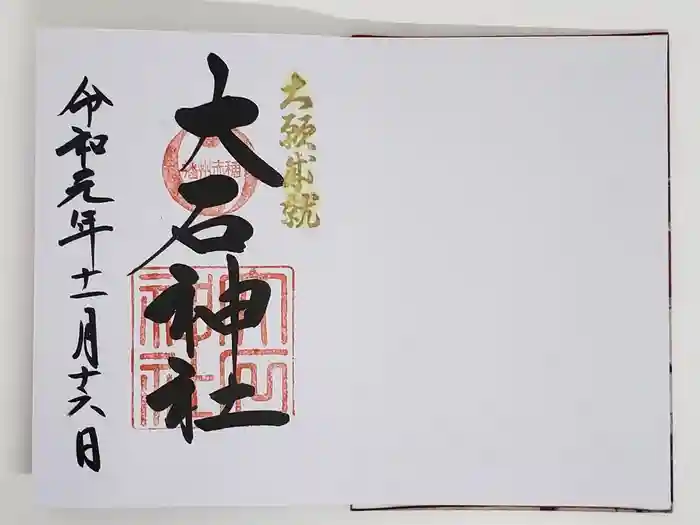 大願成就
大石神社
播州赤穂
大石神社
令和元年十一月十六日